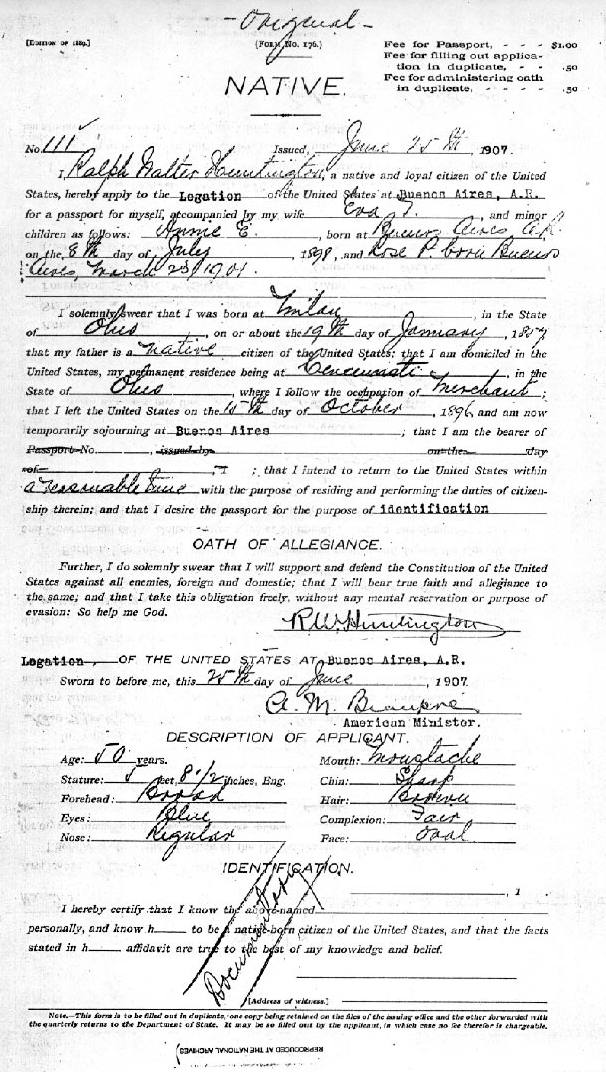 -Original-
[EDITION OF 1889.]
(FORM NO. 176.)
Fee for Passport, - - - $1.00
Fee for filling out applica-
tion in duplicate, - - .50
Fee for administering oath
in duplicate, - - - - .50
NATIVE.
No. 111 Issued, June 25th 1907.
I, Ralph Walter Huntington, a native and loyal citizen of the United
States, hereby apply to the Legation of the United States at Buenos Aires, A.R.
for a passport for myself, accompanied by my wife Eva T., and minor
children as follows: Annie E. born at Buenos Aires, A.R.
on the 8th day of July, 1898, and Rose P. born Buenos
Aires, March 23 1901.
I solemnly swear that I was born at Milan, in the State
of Ohio, on or about the 19th day of January, 1857
that my father is a native citizen of the United States; that I am domiciled in the
United States, my permanent residence being at Cincinnati, in the
State of Ohio, where I follow the occupation of Merchant;
that I left the United States on the day of October, 1896, and am now
temporarily sojourning at Buenos Aires; that I am the bearer of
Passport No. , issued by on the day
of , 1 ; that I intend to return to the United States within
a reasonable time with the purpose of residing and performing the duties of citizen-
ship therein; and that I desire the passport for the purpose of identification
OATH OF ALLEGIANCE.
Further, I do solemnly swear that I will support and defend the Constitution of the United
States against all enemies, foreign and domestic; that I will bear true faith and allegiance to
the same; and that I take this obligation freely, without any mental reservation or purpose of
evasion: So help me God.
R.W. Huntington
Legation, OF THE UNITED STATES AT Buenos Aires, A.R.
Sworn to before me, this 25th day of June, 1907
A. M. Beaupré
American Minister.
DESCRIPTION OF APPLICANT.
Age: 50 years.
Mouth: Moustache
Stature: 5 feet, 8 1/2 inches, Eng.
Chin: Sharp
Forehead: Broad
Hair: Brown
Eyes: Blue
Complexion: Fair
Nose: Regular
Face: Oval
IDENTIFICATION.
, 1
I hereby certify that I know the above-named
personally, and know h to be a native-born citizen of the United States, and that the facts
stated in h affidavit are true to the best of my knowledge and belief.
[Address of witness.]
NOTE.—This form is to be filled out in duplicate, one copy being retained on the files of the issuing office and the other forwarded with
the quarterly returns to the Department of State. It may be so filled out by the applicant, in which case no fee therefor is chargeable.
REPRODUCED AT THE NATIONAL ARCHIVES